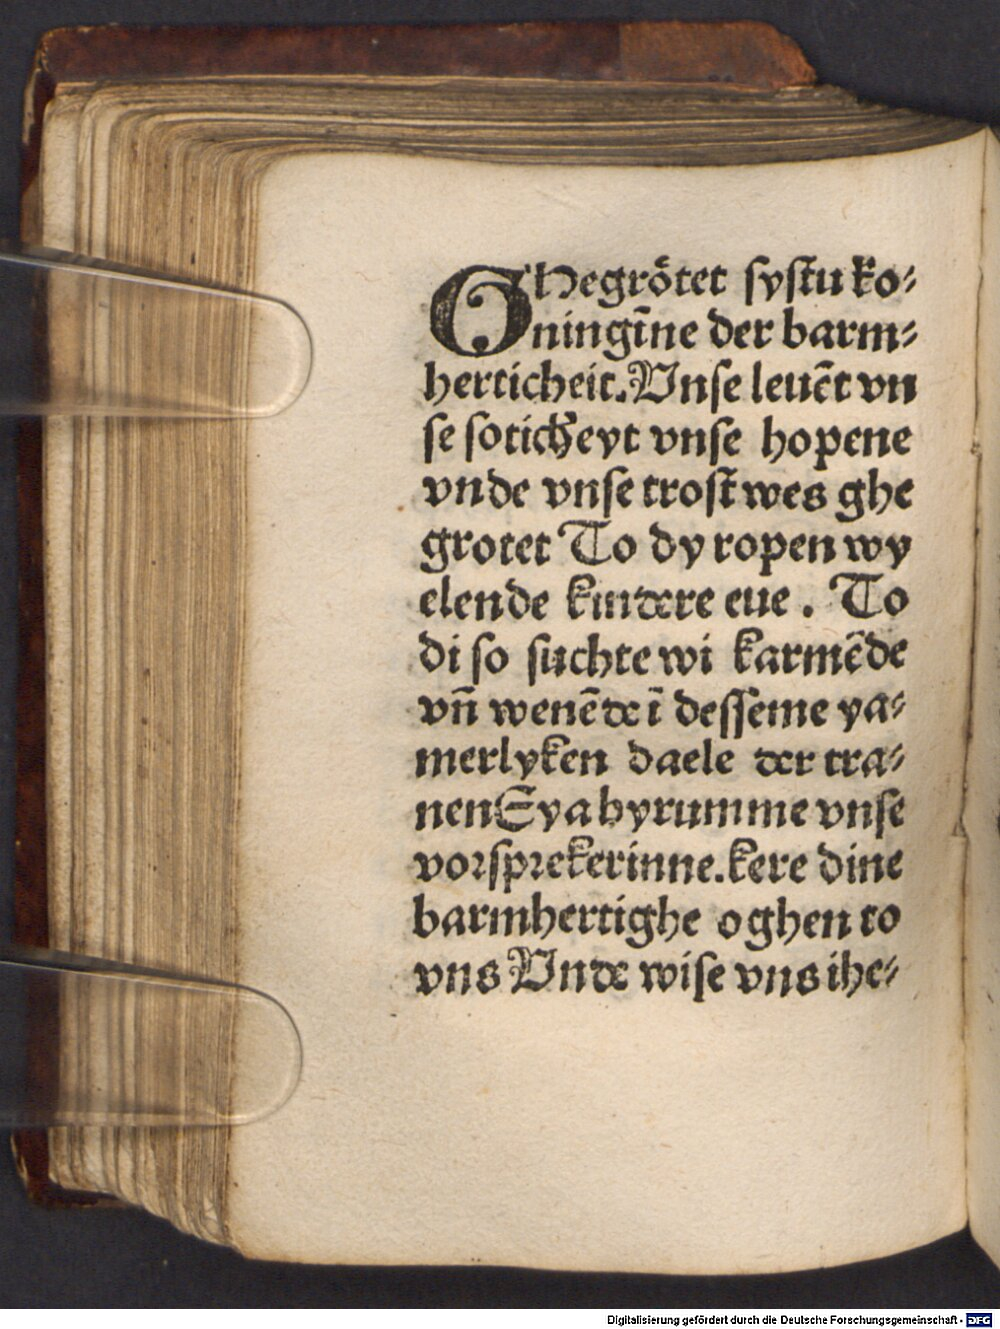 Ghegrötet systu ko⸗
ningīne der barm⸗
herticheit. Vnse leuēt vn
se soticheyt vnse hopene
vnde vnse trost wes ghe
grotet To dy ropen wy
elende kindere eue . To
di so suchte wi karmēde
vn̄ wenēde ī desseme ya⸗
merlyken daele der tra⸗
nen Eya hyrumme vnse
vorsprekerinne. kere dine
barmhertighe oghen to
vns Vnde wise vns ihe⸗
Digitalisierung gefördert durch die Deutsche Forschungsgemeinschaft - DFG